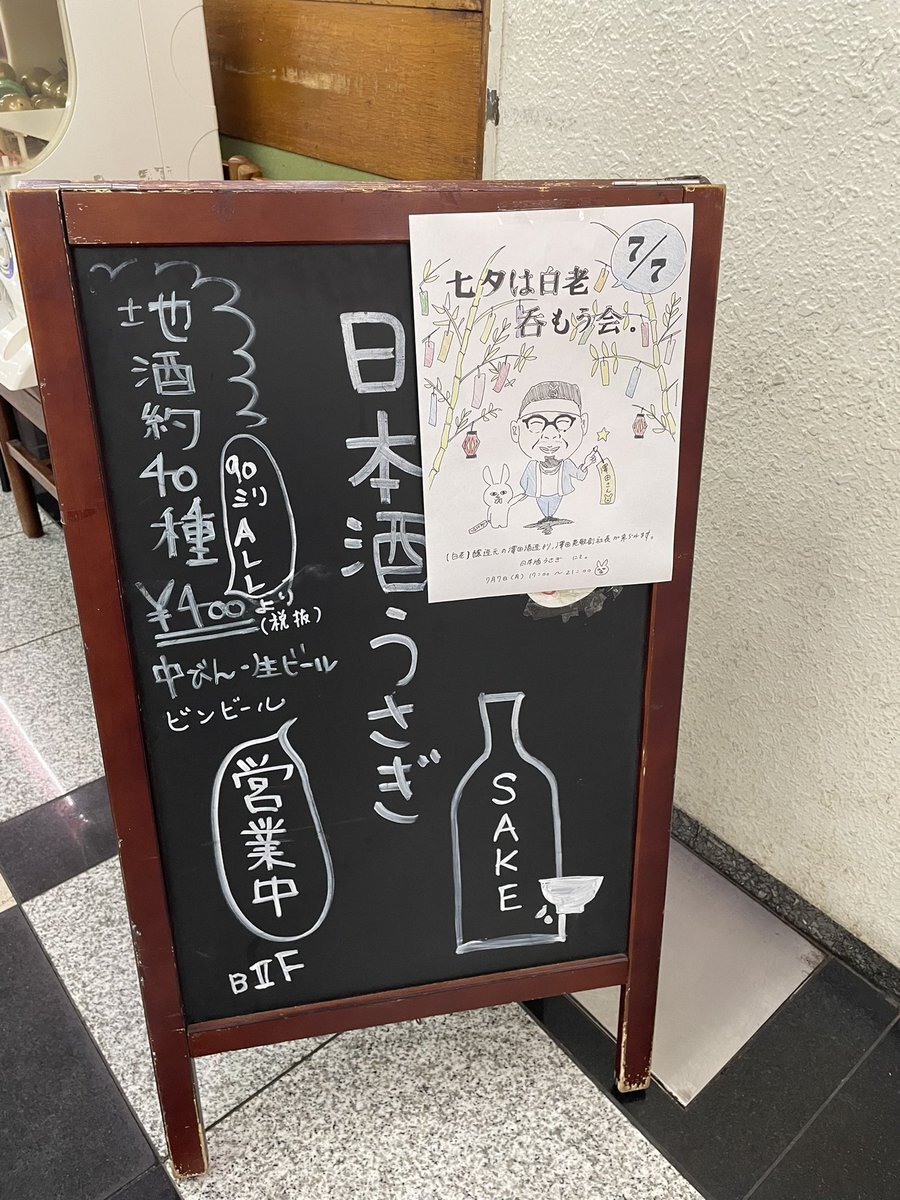 日本酒うさぎ
地酒約40種
90ミリALL
¥400
より
(税抜)
中びん・生ビール
ビンビール
営業中
BⅡF
SAKE
7/7
七夕は白老
呑もう会。
澤田さん
【白老】醸造元の澤田酒造より、澤田英敏副社長が来られます。
日本酒うさぎ にて。
7月7日(月) 17:00〜21:00